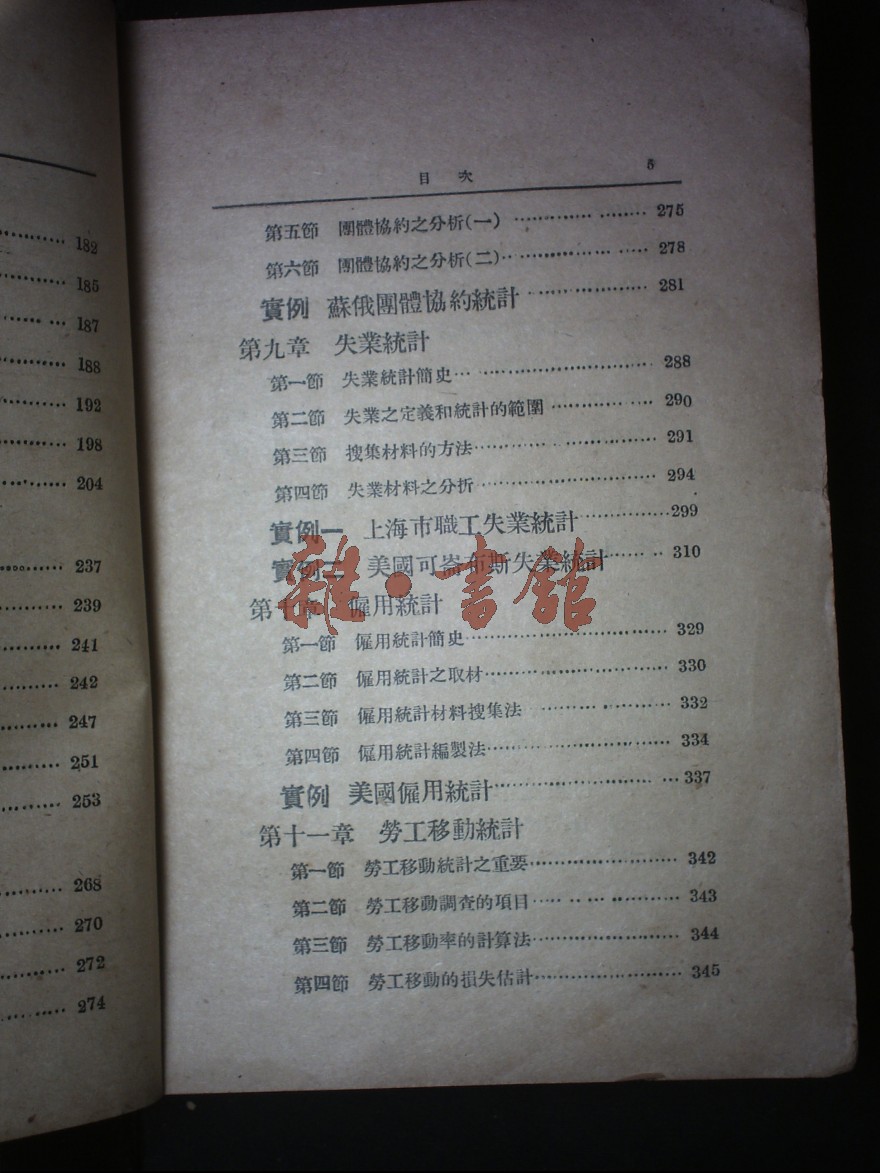 182
185
187
188
192
198
204
237
239
241
242
247
251
253
268
270
272
274
目 次 5
第五節 團體協約之分析(一) 275
第六節 團體協約之分析(二) 278
實例 蘇俄團體協約統計 281
第九章 失業統計
第一節 失業統計簡史 288
第二節 失業之定義和統計的範圍 290
第三節 搜集材料的方法 291
第四節 失業材料之分折 294
實例一 上海市職工失業統計 299
實例二 美國可崙布斯失業統計 310
第十章 僱用統計
第一節 僱用統計簡史 329
第二節 僱用統計之取材 330
第三節 僱用統計材料搜集法 332
第四節 僱用統計編製法 334
實例 美國僱用統計 337
第十一章 勞工移動統計
第一節 勞工移動統計之重要 342
第二節 勞工移動調查的項目 343
第三節 勞工移動率的計算法 344
第四節 勞工移動的損失估計 345
雜·書館